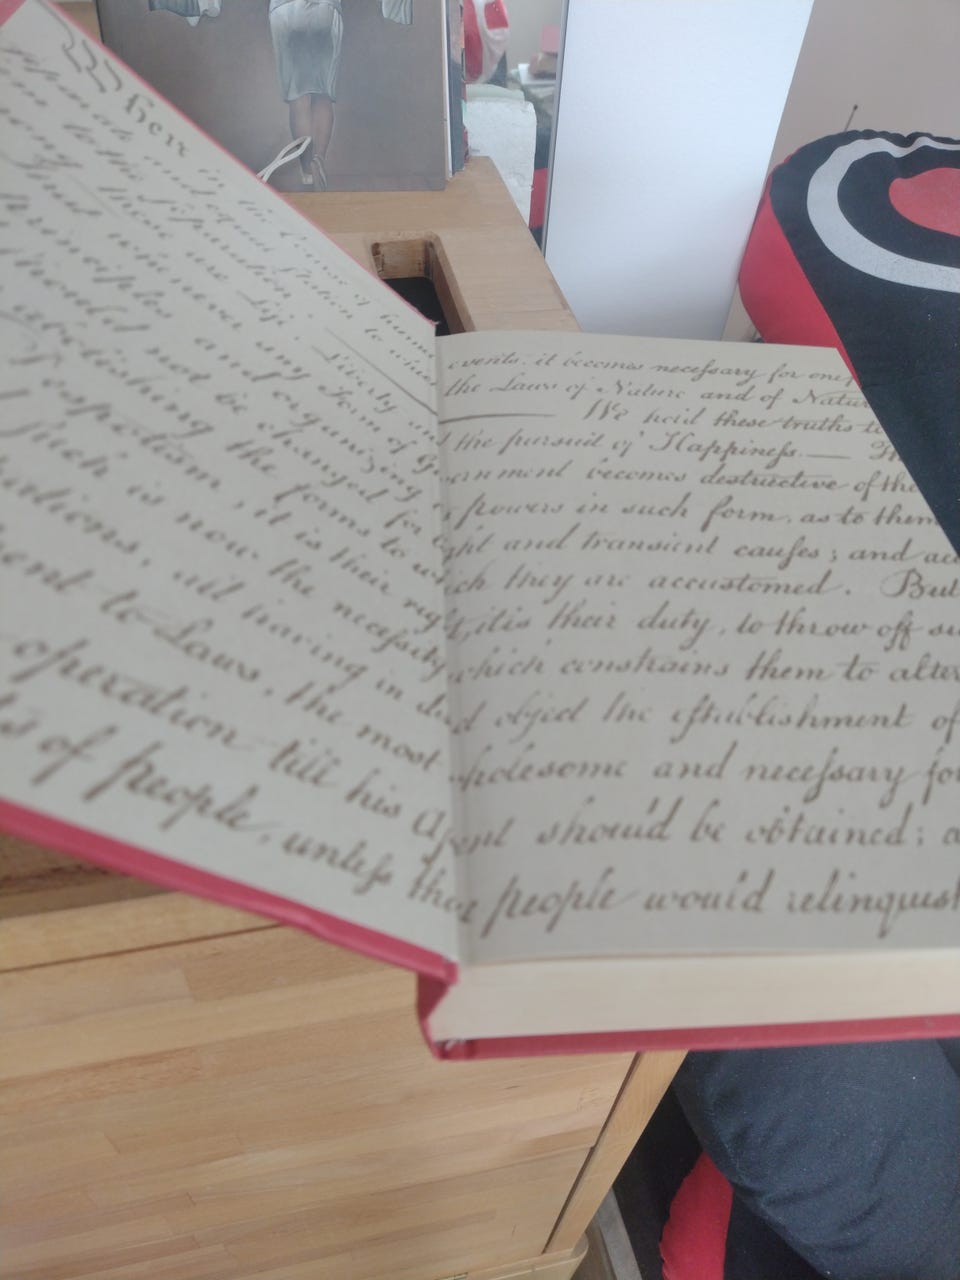 When in the Course of human events, it becomes neceſsary for one
separate and equal Station to which the Laws of Nature and of Natur
to the separation. —— We hold these truths to
among these are Life, Liberty and the pursuit of Happineſs. —
That whenever any Form of Government becomes destructive of the
principles and organizing powers in such form, as to them
should not be changed for light and transient cauſes; and acc
abolishing the forms to which they are accustomed. But
Despotism, it is their right, it is their duty, to throw off su
such is now the neceſsity which constrains them to alter
pations, all having in object the eſtablishment of
ent to Laws, the most wholesome and neceſsary for
operation till his Aſsent should be obtained; a
ts of people, unleſs those people would relinquish